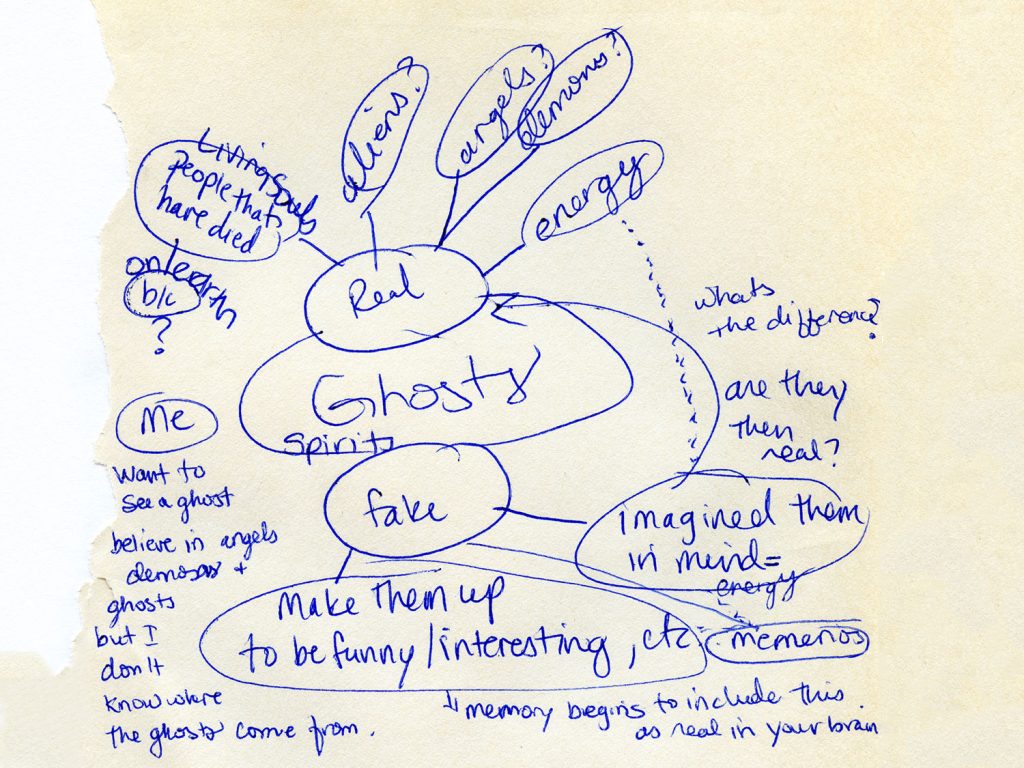 aliens?
angels?
demons?
Living Souls
people that
have died
on earth
b/c
?
energy
Real
whats
the difference?
Ghosts
spirits
are they
then
real?
Me
want to
see a ghost
believe in angels
demons +
ghosts
but I
don't
know where
the ghosts come from.
fake
imagined them
in mind=
energy
Make them up
to be funny/interesting, etc
memerios
memory begins to include this
as real in your brain